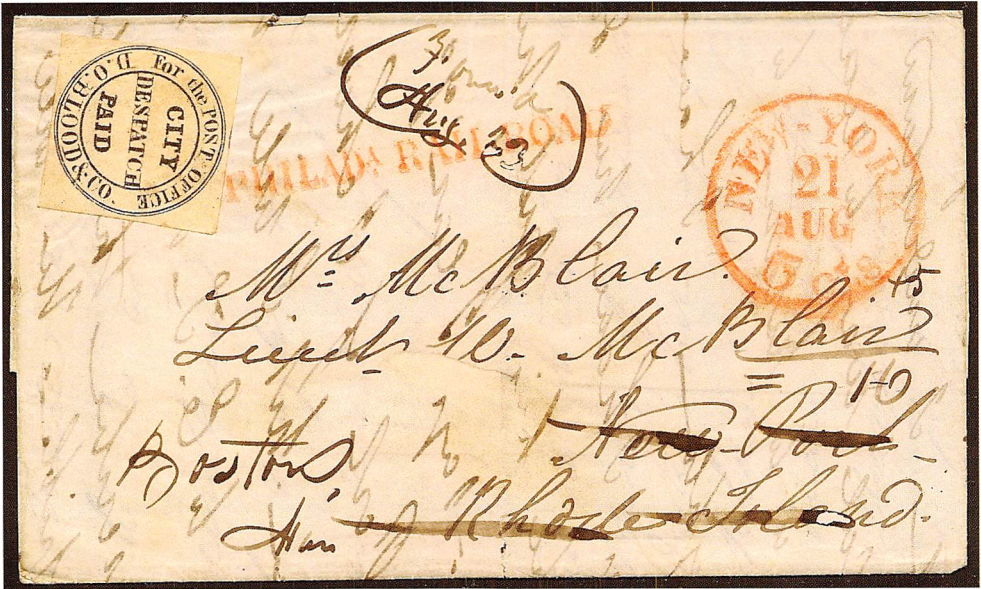 D.O. BLOOD & CO.
For the POST OFFICE
CITY
DESPATCH
PAID
Aug 23
PHILADA RAIL ROAD
NEW-YORK
21
AUG
5 cts
Mrs McBlair.
Lieut McBlair
+5
= 10
New-Port-
Boston,
Rhode Island.